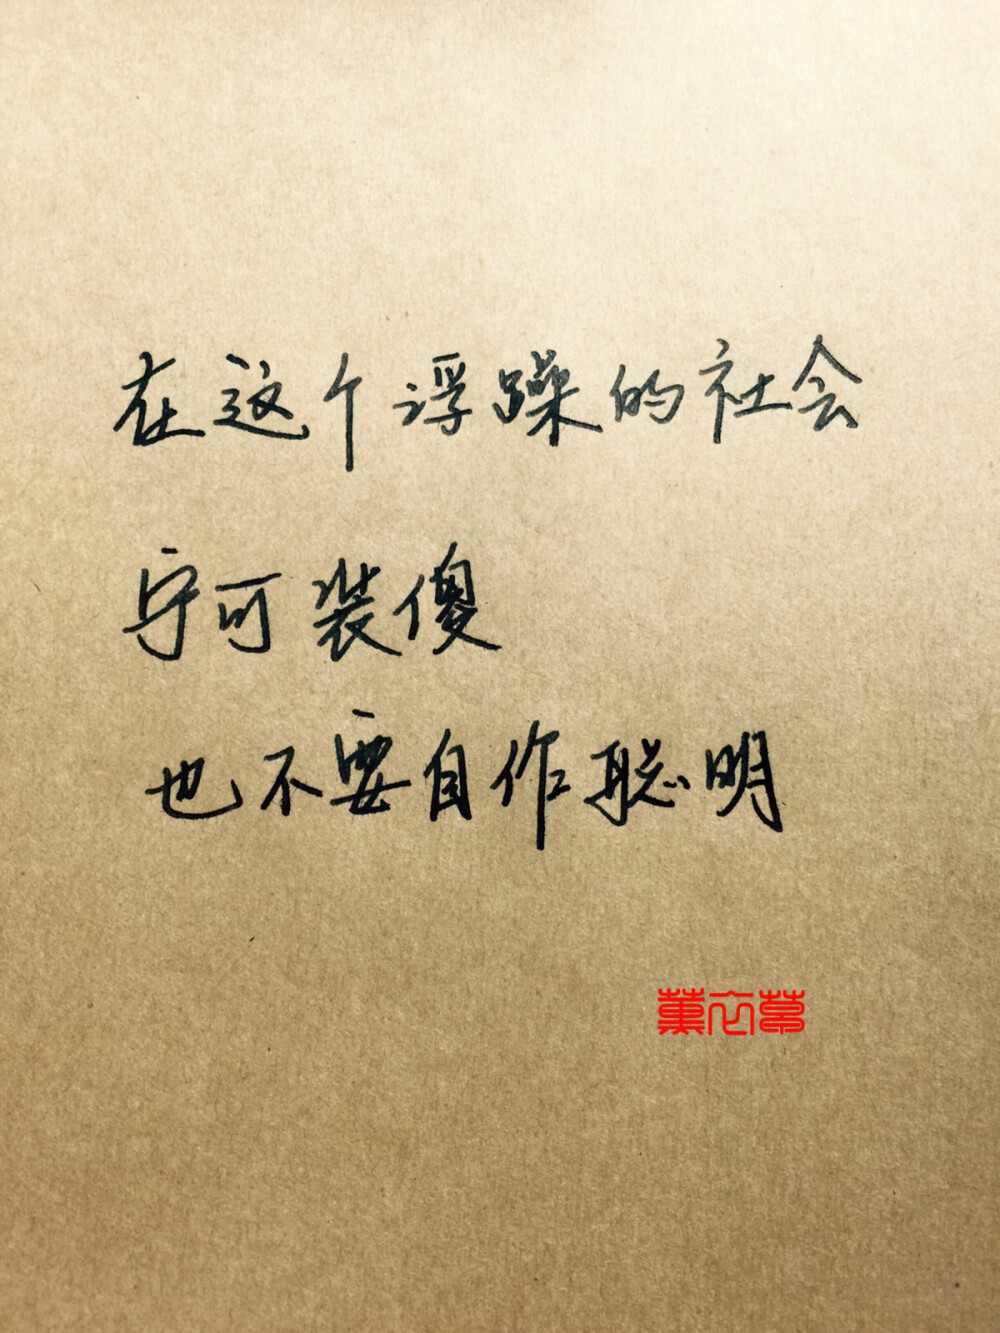 在这个浮躁的社会
宁可装傻
也不要自作聪明